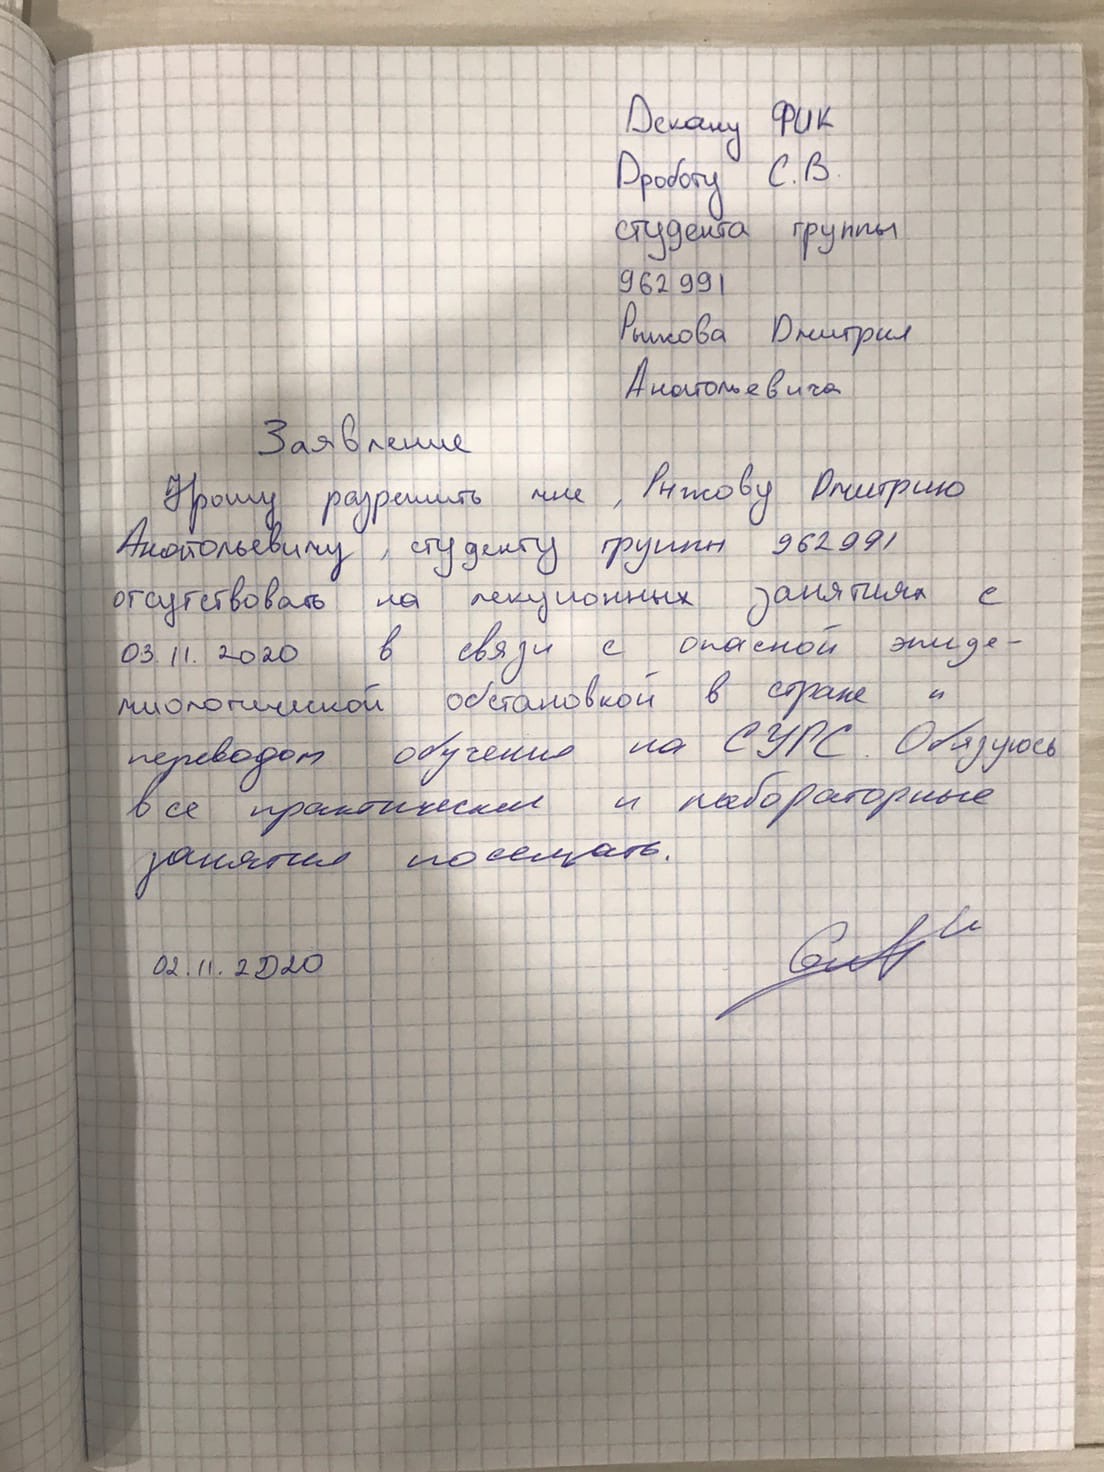 Декану ФИК
Дроботу С.В.
студента группы
962991
Рыжова Дмитрия
Анатольевича
Заявление
Прошу разрешить мне, Рыжову Дмитрию
Анатольевичу, студенту группы 962991
отсутствовать на лекционных занятиях с
03.11.2020 в связи с опасной эпиде-
миологической обстановкой в стране и
переводом обучения на СУРС. Обязуюсь
все практические и лабораторные
занятия посещать.
02.11.2020